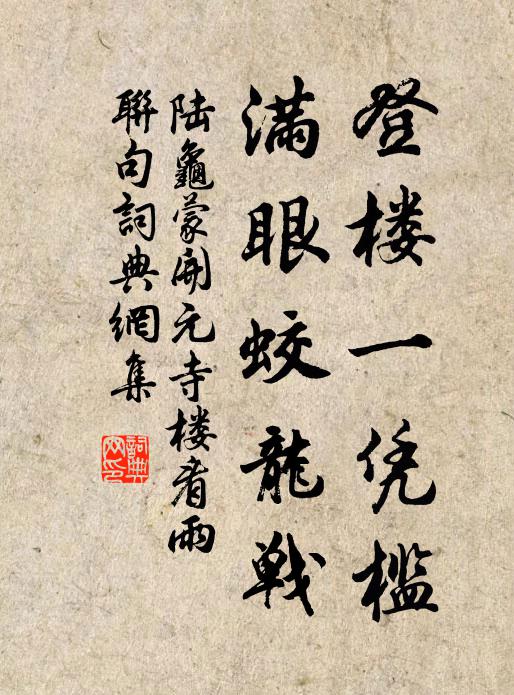 登楼一凭槛
满眼蛟龍戦
陆龜蒙開元寺楼看雨
聯句詞典網集
詞典网印